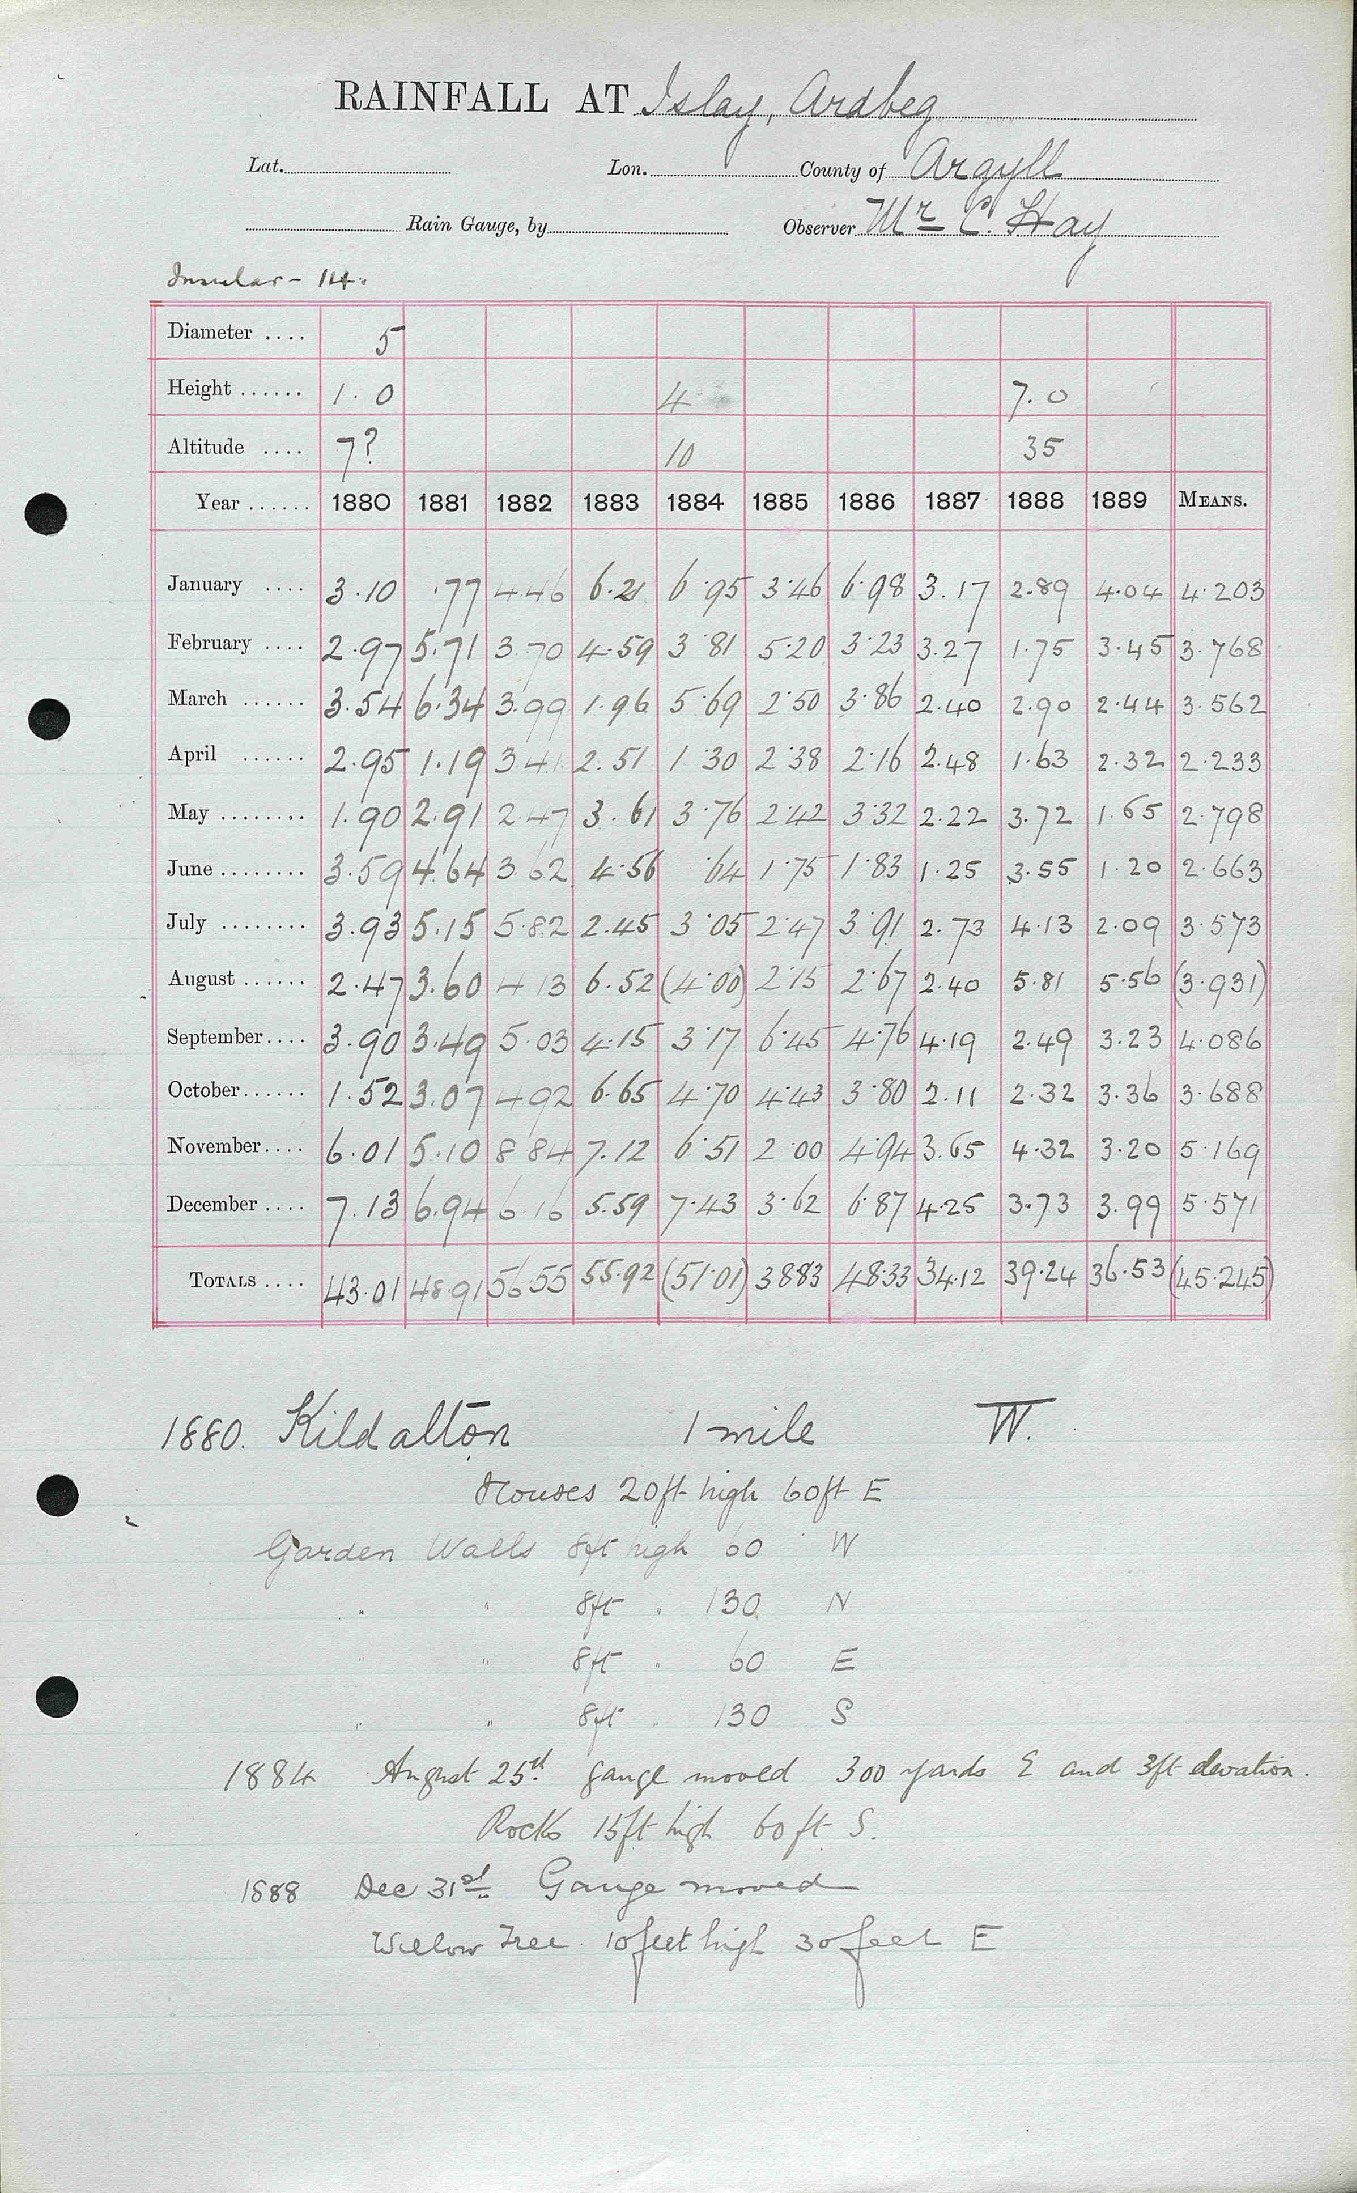 RAINFALL AT Islay, Ardbeg
Lat. Lon. County of Argyll
Rain Gauge, by Observer Mr C. Hay
Insular - 114.
Diameter .... 5
Height ...... 1.0 4 7.0
Altitude .... 7? 10 35
Year ...... 1880 1881 1882 1883 1884 1885 1886 1887 1888 1889 MEANS.
January .... 3.10 .77 4.46 6.21 6.95 3.46 6.98 3.17 2.89 4.04 4.203
February .... 2.97 5.71 3.70 4.59 3.81 5.20 3.23 3.27 1.75 3.45 3.768
March ...... 3.54 6.34 3.99 1.96 5.69 2.50 3.86 2.40 2.90 2.44 3.562
April ...... 2.95 1.19 3.41 2.51 1.30 2.38 2.16 2.48 1.63 2.32 2.233
May ........ 1.90 2.91 2.47 3.61 3.76 2.42 3.32 2.22 3.72 1.65 2.798
June ........ 3.59 4.64 3.62 4.56 .64 1.75 1.83 1.25 3.55 1.20 2.663
July ........ 3.93 5.15 5.82 2.45 3.05 2.47 3.91 2.73 4.13 2.09 3.573
August ...... 2.47 3.60 4.13 6.52 (4.00) 2.15 2.67 2.40 5.81 5.56 (3.931)
September .... 3.90 3.49 5.03 4.15 3.17 6.45 4.76 4.19 2.49 3.23 4.086
October ...... 1.52 3.07 4.92 6.65 4.70 4.43 3.80 2.11 2.32 3.36 3.688
November .... 6.01 5.10 8.84 7.12 6.51 2.00 4.94 3.65 4.32 3.20 5.169
December .... 7.13 6.94 6.16 5.59 7.43 3.62 6.87 4.25 3.73 3.99 5.571
TOTALS .... 43.01 48.91 56.55 55.92 (51.01) 38.83 48.33 34.12 39.24 36.53 (45.245)
1880. Kildalton 1 mile W.
Houses 20ft high 60ft E
Garden Walls 8ft high 60 W
" " 8ft " 130 N
" " 8ft " 60 E
" " 8ft " 130 S
1884 August 25th gauge moved 300 yards E and 3ft elevation.
Rocks 15ft high 60 ft S.
1888 Dec 31st. Gauge moved
Willow Tree 10 feet high 30 feet E